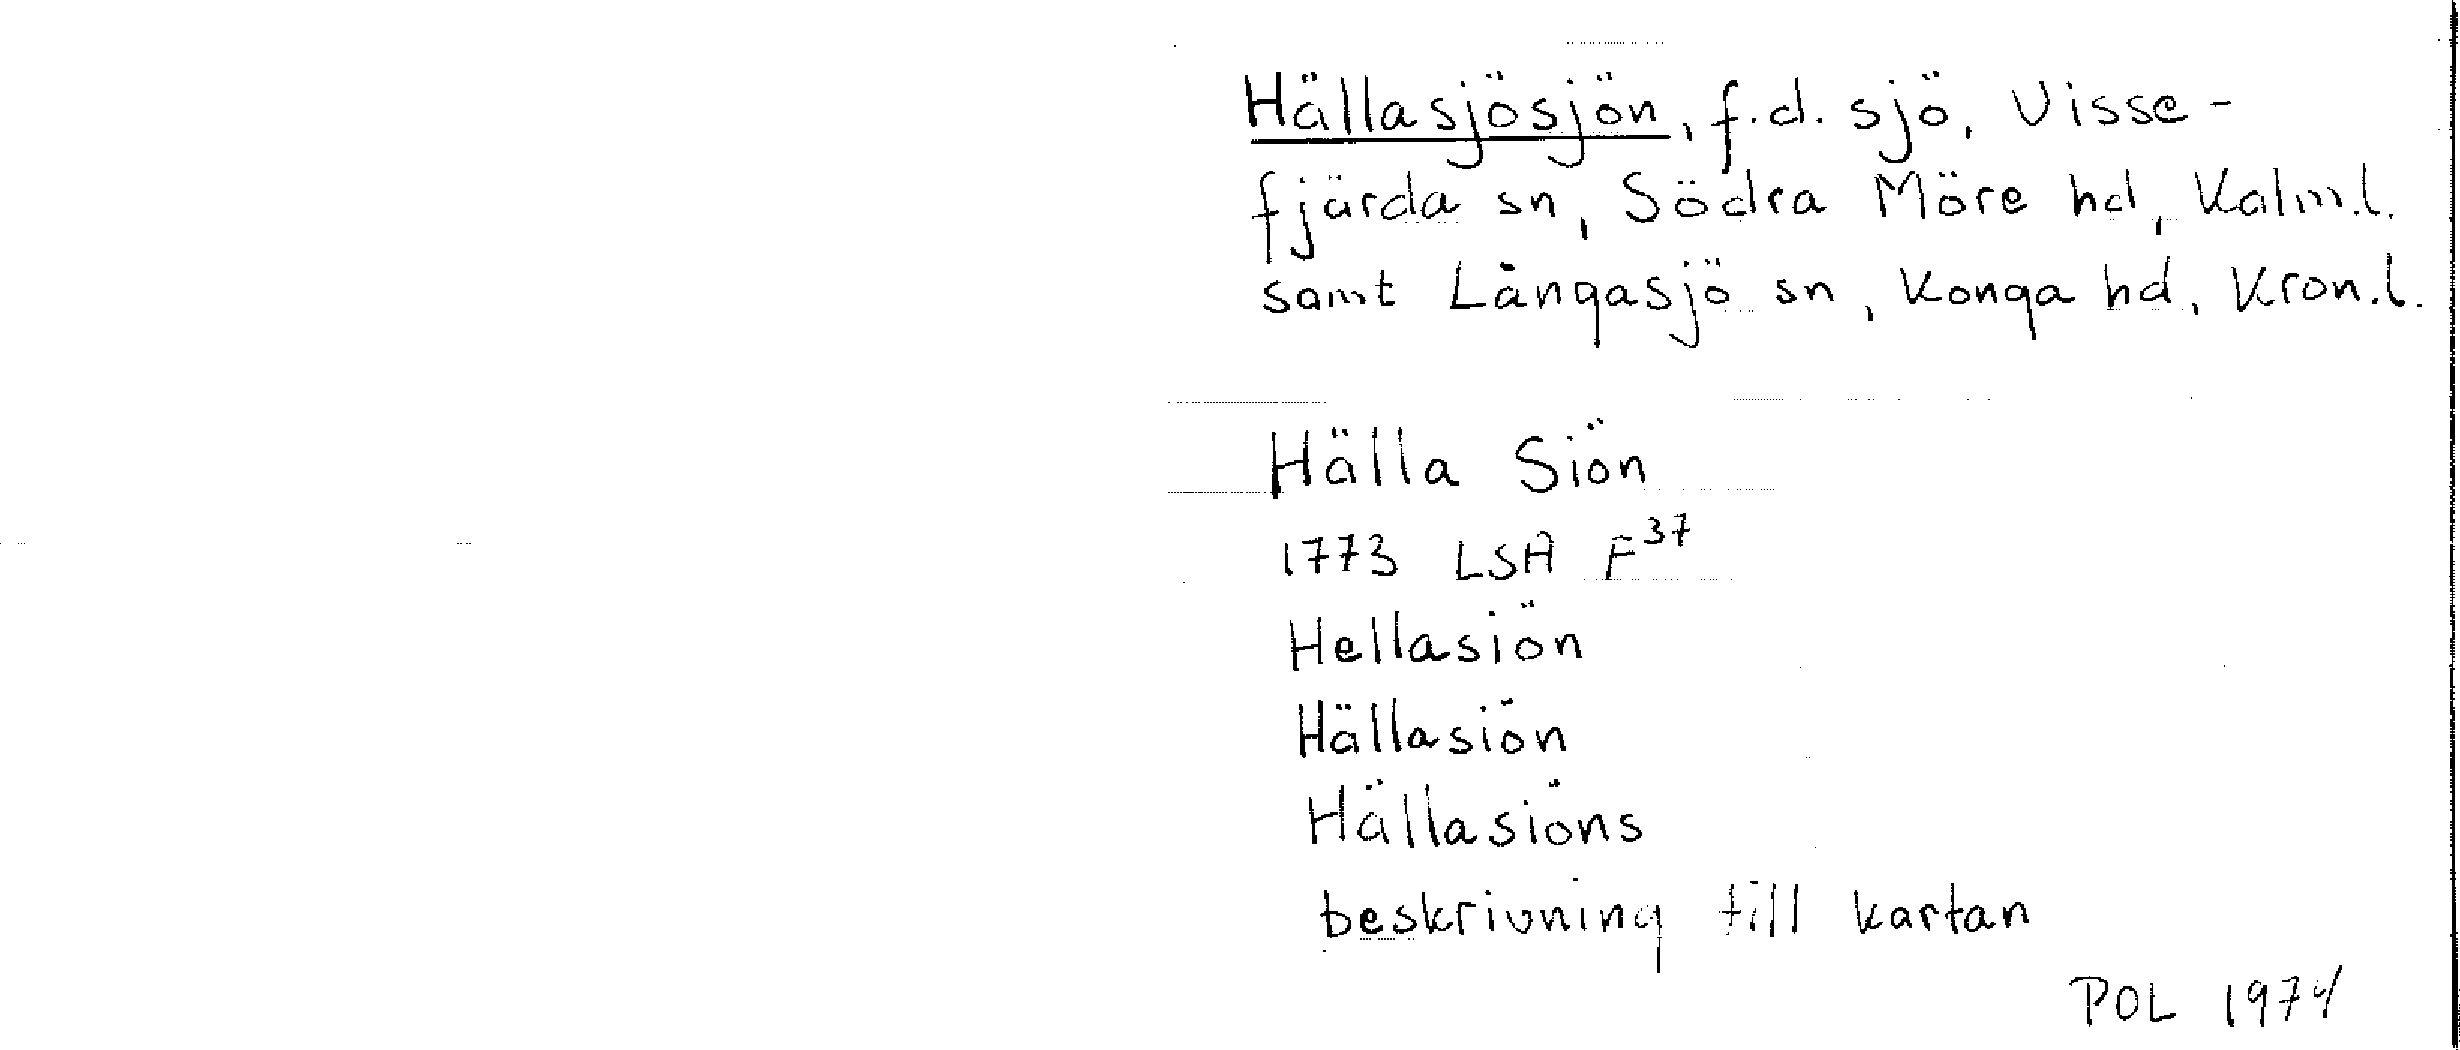 Hällasjösjön, f.d. sjö, Visse-
fjärda sn, Södra Möre hd, Kalm.l.
samt Långasjö sn, Konga hd, Kron.l.
Hälla Siön
1773 LSA F37
Hellasiön
Hällasiön
Hällasiöns
beskrivning till kartan
POL 1974